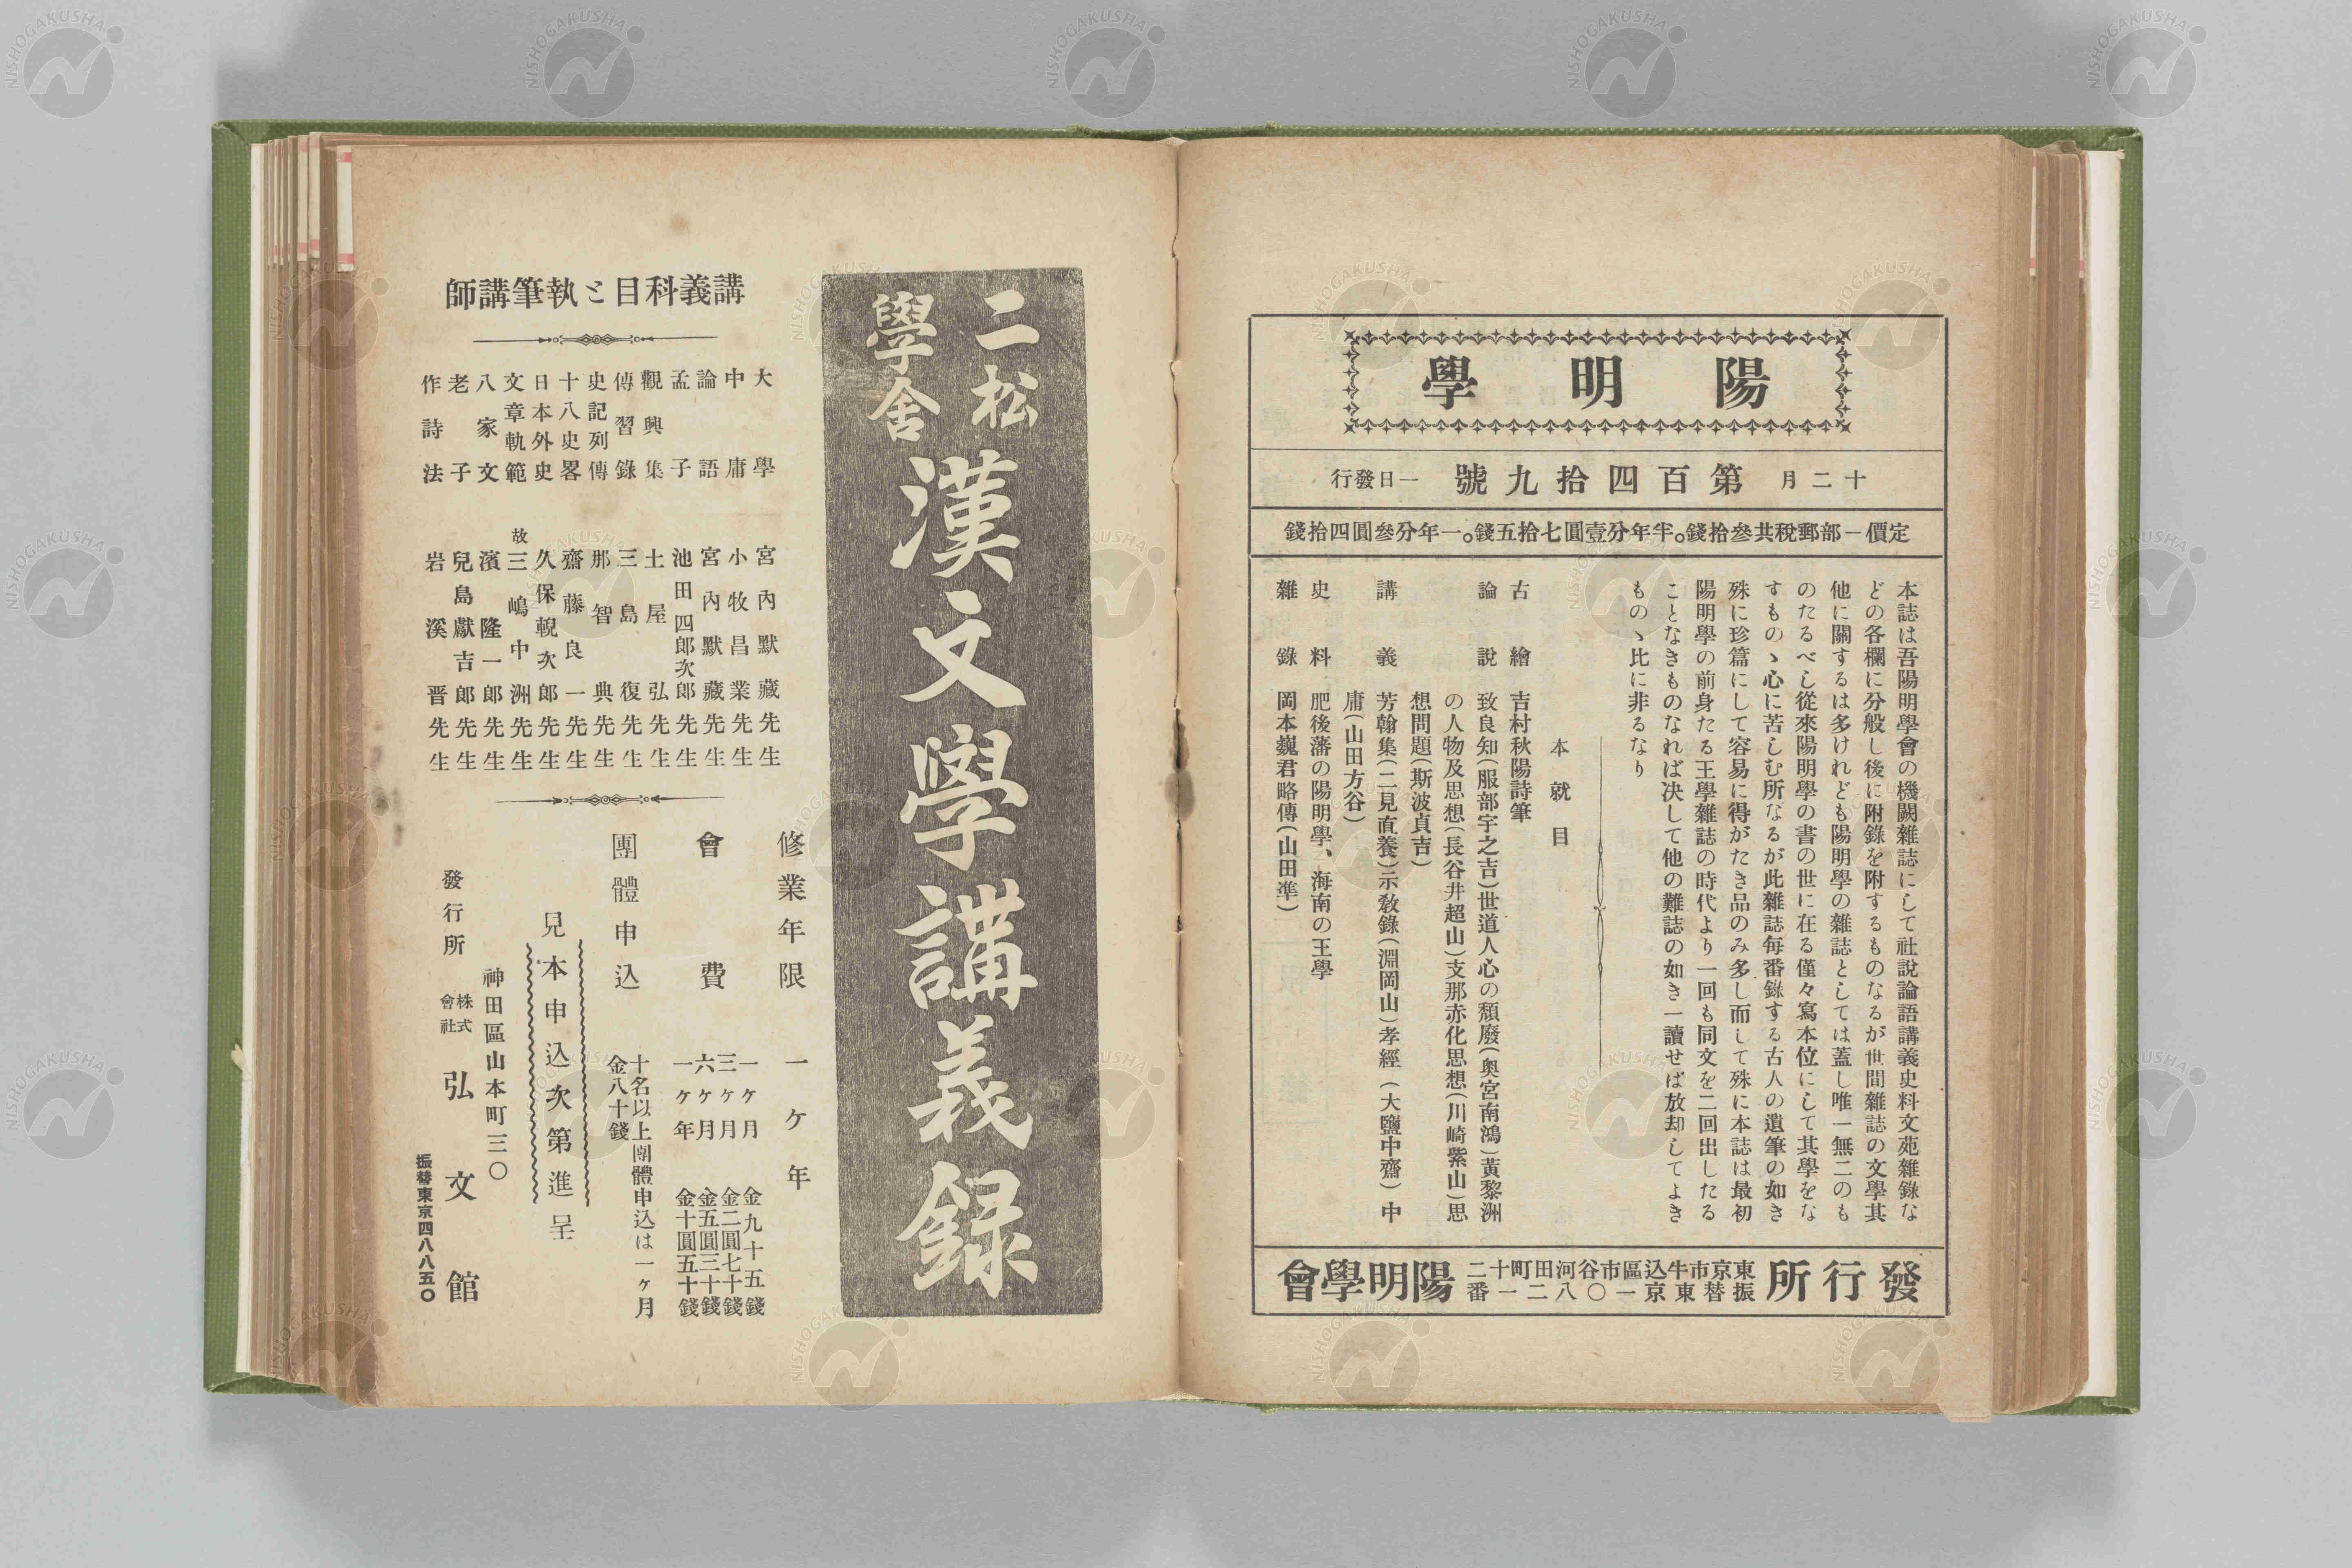 陽明學
十二月 第百四拾九號 一日發行
定價一部郵稅共參拾錢。半年分壹圓七拾五錢。一年分參圓四拾錢
本誌は吾陽明學會の機關雜誌にして社說論語講義史料文苑雜錄な
どの各欄に分般し後に附錄を附するものなるが世間雜誌の文學其
他に關するは多けれども陽明學の雜誌としては蓋し唯一無二のも
のたるべし從來陽明學の書の世に在る僅々寫本位にして其學をな
すものゝ心に苦しむ所なるが此雜誌每番錄する古人の遺筆の如き
殊に珍篇にして容易に得がたき品のみ多し而して殊に本誌は最初
陽明學の前身たる王學雜誌の時代より一回も同文を二回出したる
ことなきものなれば决して他の難誌の如き一讀せば放却してよき
ものゝ比に非るなり
本就目
古繪 吉村秋陽詩筆
論說 致良知(服部宇之吉)世道人心の頽廢(奧宮南鴻)黃黎洲
の人物及思想(長谷井超山)支那赤化思想(川崎紫山)思
想問題(斯波貞吉)
講義 芳翰集(二見直養)示敎錄(淵岡山)孝經(大鹽中齋)中
庸(山田方谷)
史料 肥後藩の陽明學、海南の王學
雜錄 岡本巍君略傳(山田準)
發行所 東京市牛込區市谷河田町十二 振替東京一〇八二一番 陽明學會
二松學舍 漢文學講義録
講義科目と執筆講師
大學 宮內默藏先生
中庸 小牧昌業先生
論語 宮內默藏先生
孟子 池田四郎次郎先生
觀興集 土屋弘先生
傳習錄 三島復先生
史記列傳 那智典先生
十八史畧 齋藤良一先生
日本外史 久保輗次郎先生
文章軌範 故三嶋中洲先生
八家文 濱隆一郎先生
老子 兒島獻吉郎先生
作詩法 岩溪晋先生
修業年限 一ヶ年
會費 一ヶ月 金九十五錢
三ヶ月 金二圓七十錢
六ヶ月 金五圓三十錢
一ヶ年 金十圓五十錢
團體申込 十名以上團體申込は一ヶ月
金八十錢
見本申込次第進呈
神田區山本町三〇
發行所 株式會社 弘文館
振替東京四八八五〇
NISHOGAKUSHA